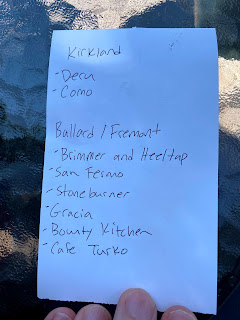 Kirkland
- Deru
- Como
Ballard / Fremont
- Brimmer and Heeltap
- San Fermo
- Stoneburner
- Gracia
- Bounty Kitchen
- Cafe Turko